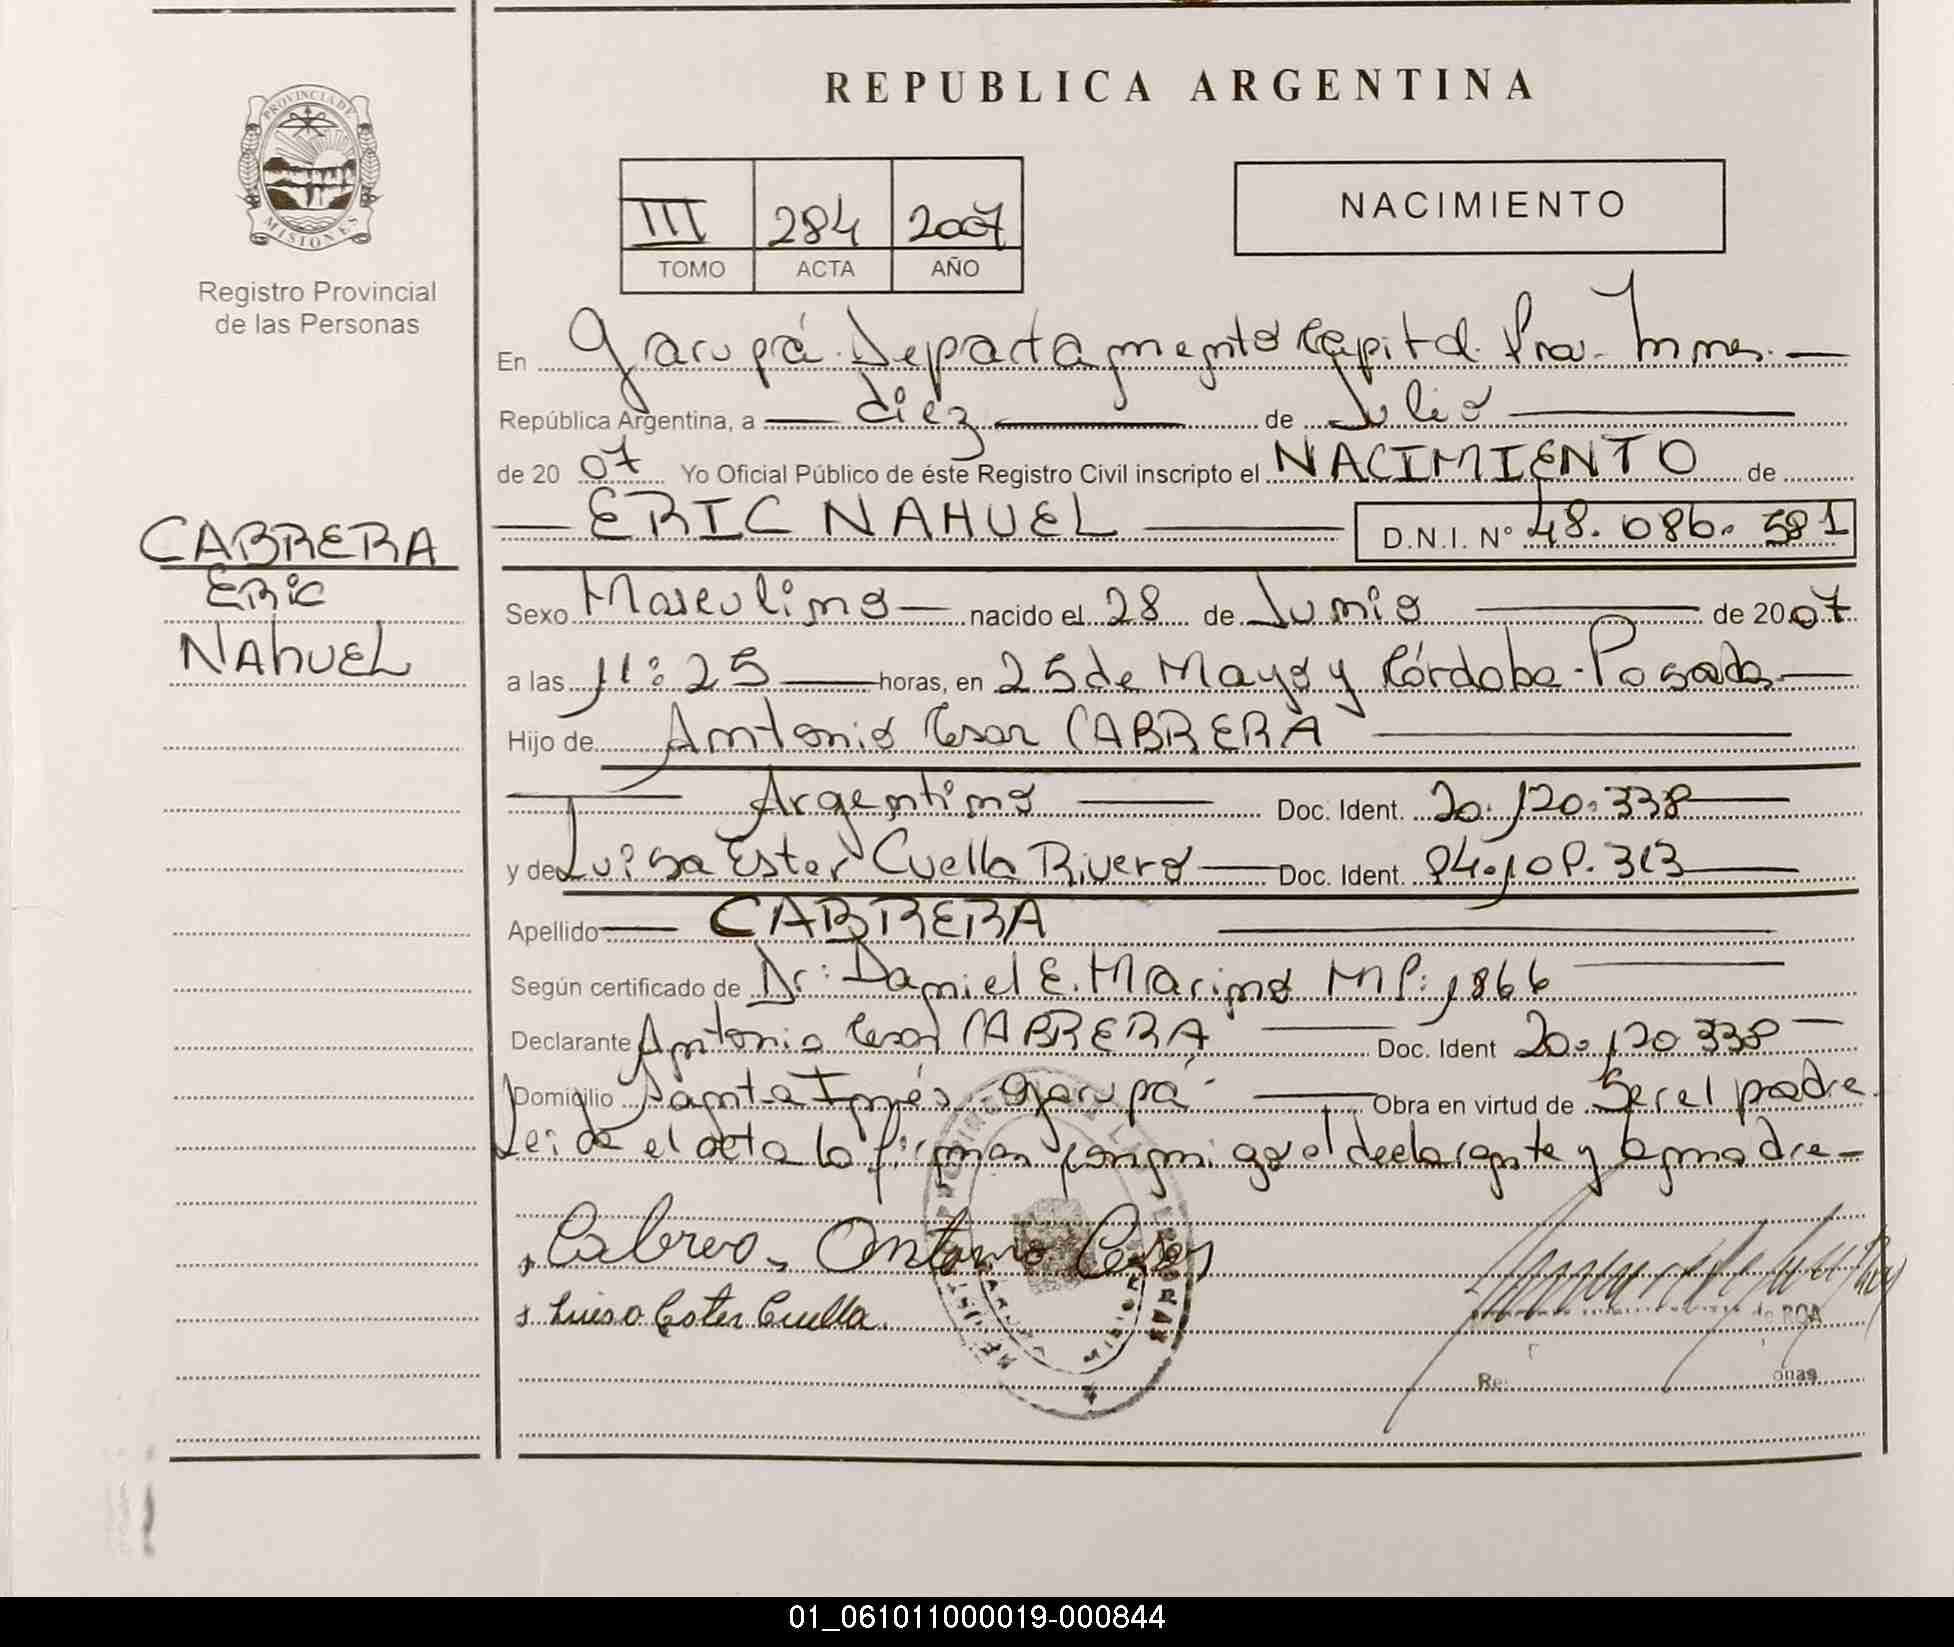 REPUBLICA ARGENTINA
PROVINCIA DE
MISIONES
Registro Provincial
de las Personas
III 284 2007
TOMO ACTA AÑO
NACIMIENTO
En Garupá Departamento Capital Prov.
República Argentina, a diez de Julio
de 20 07 Yo Oficial Público de éste Registro Civil inscripto el NACIMIENTO de
ERIC NAHUEL D.N.I. N° 48.086.581
CABRERA
ERic
NAhUEL
Sexo Masculino nacido el 28 de Junio de 20 07
a las 11:25 horas, en 25 de Mayo y Córdoba - Posadas
Hijo de Antonio Cesar CABRERA
Argentino Doc. Ident. 20.120.338
y de Luisa Ester Cuella Rivero Doc. Ident. 94.109.313
Apellido CABRERA
Según certificado de Dr: Daniel E. Marino MP: 1866
Declarante Antonio Cesar CABRERA Doc. Ident 20.120 338
Domicilio Santa Inés Garupá Obra en virtud de Ser el padre
Leida el acta la firman conmigo el declarante y la madre
Cabrera, Antonio Cesar
Luisa Ester Cuella.
01_061011000019-000844